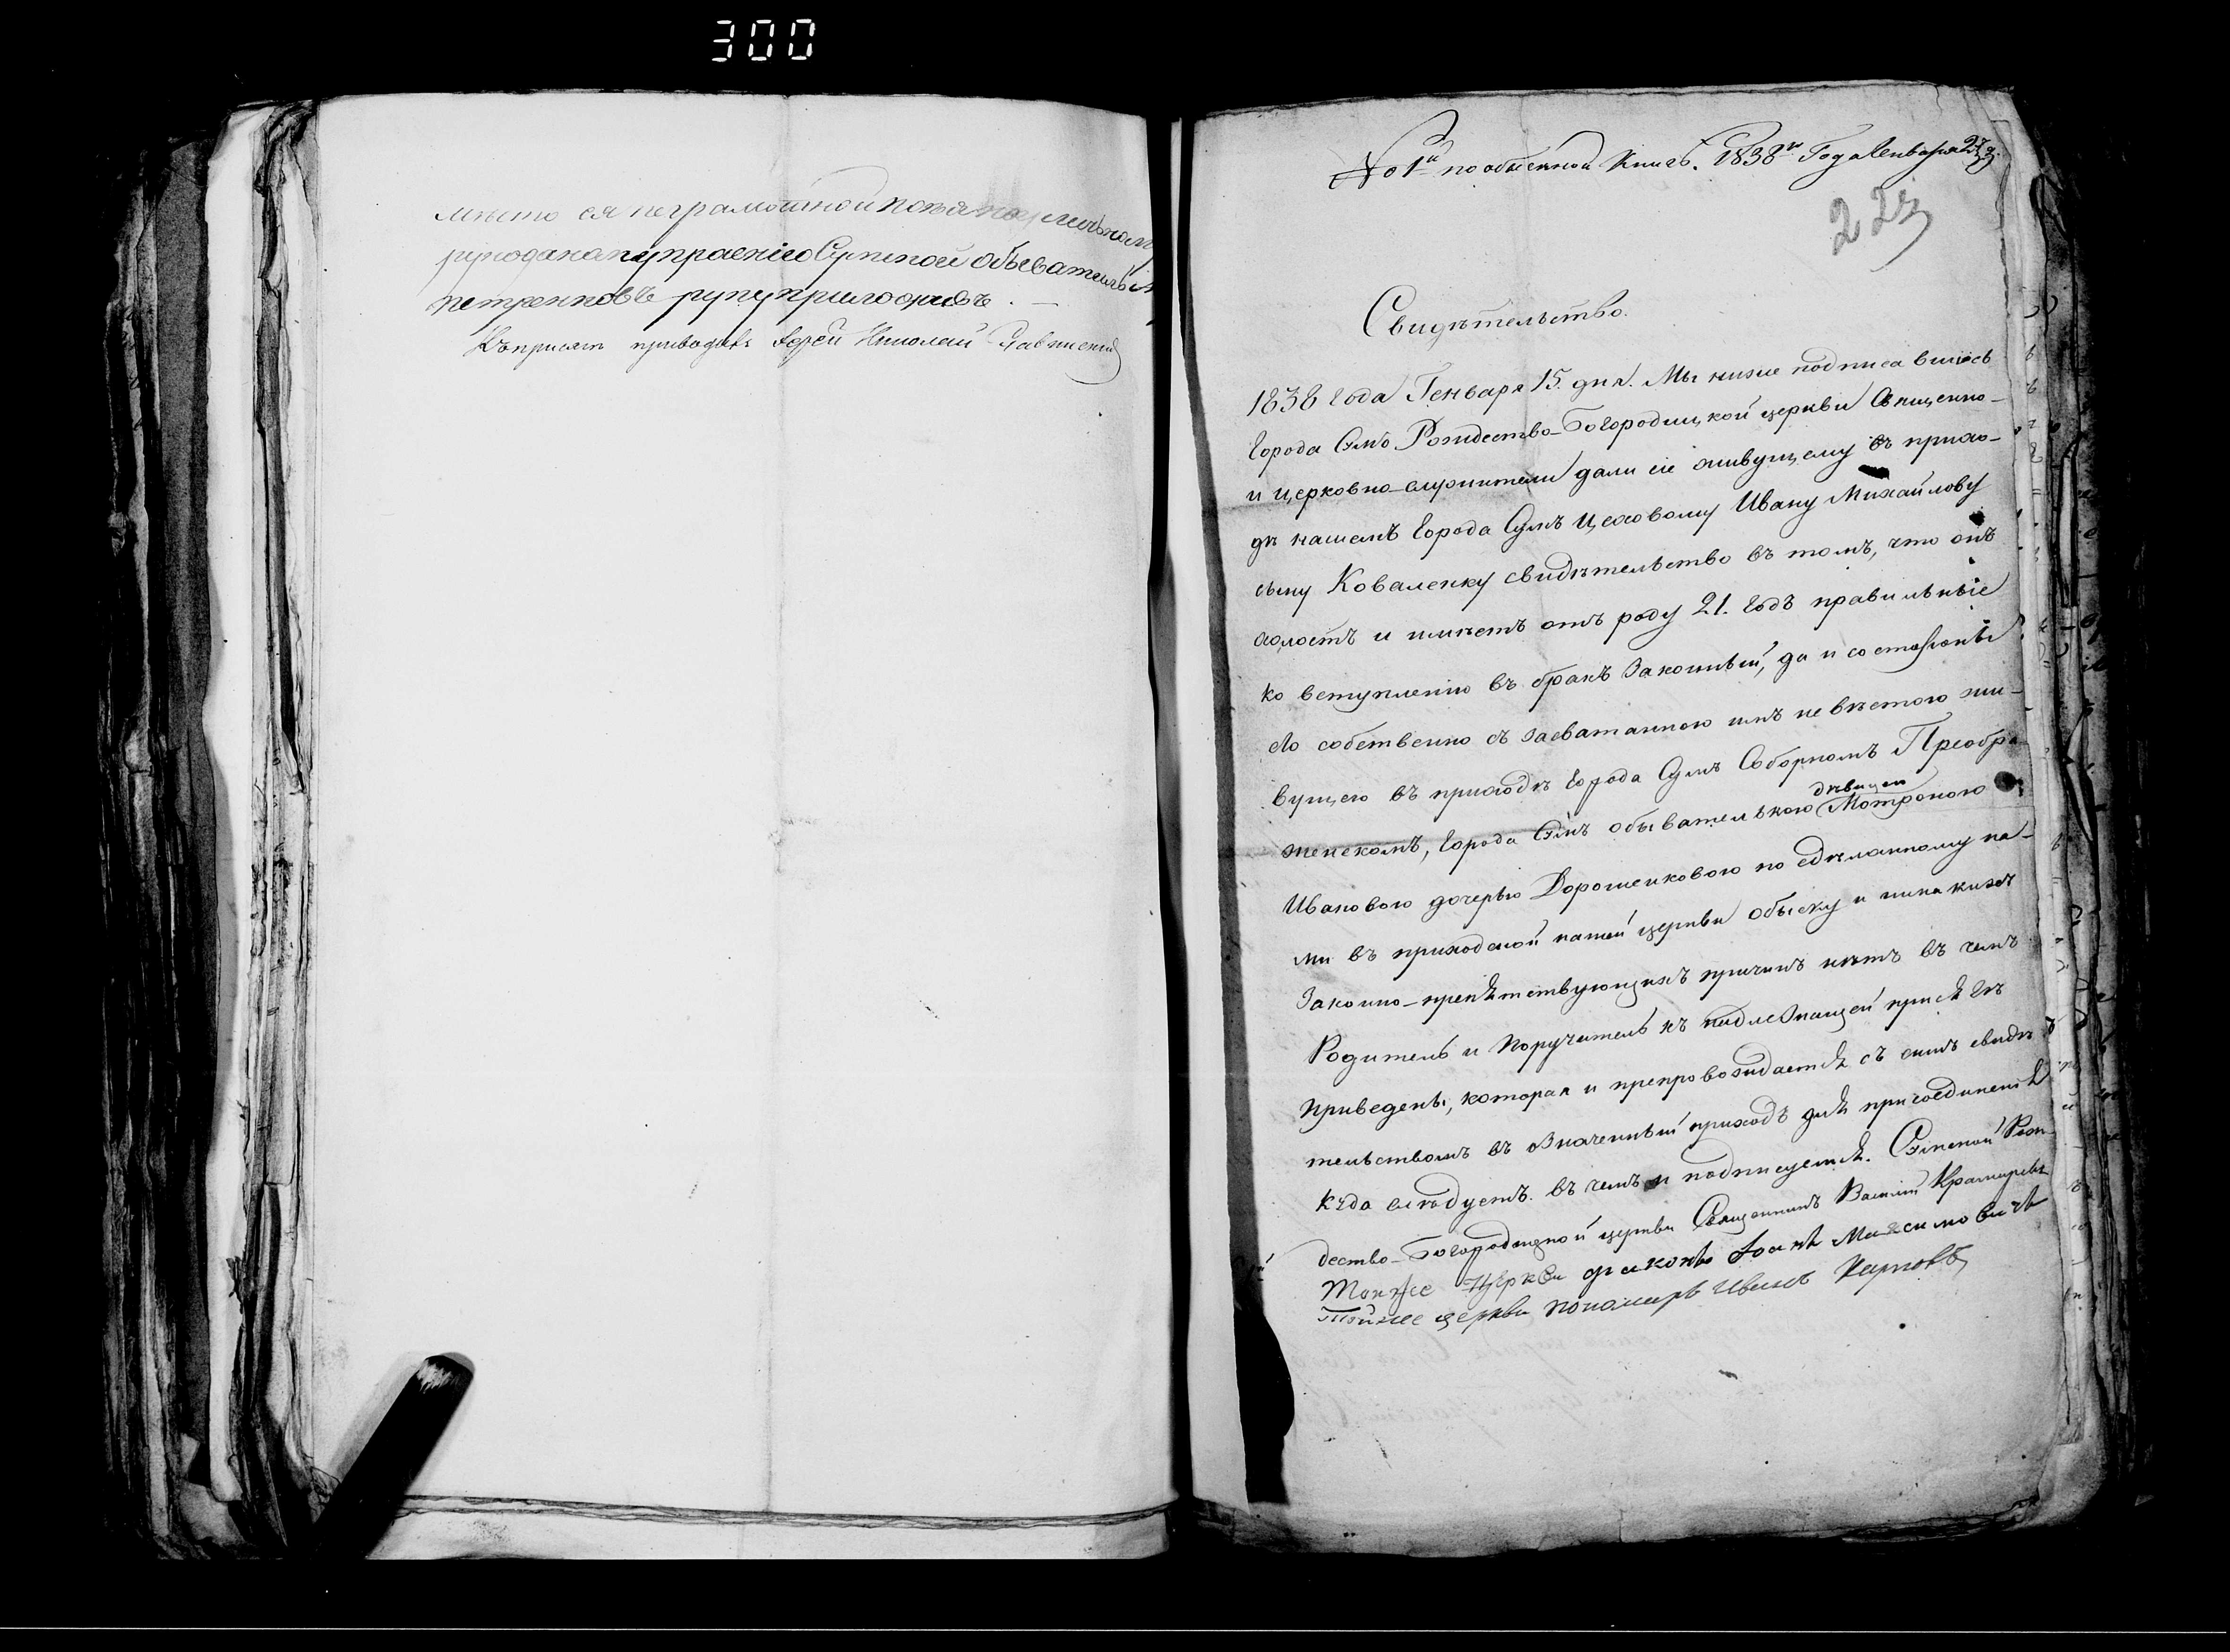 300
мѣсто ея неграмотной по ея
рукодана купраенію Сумской Обыватель
петренковъ руку приложивъ. —
Къ присягѣ приводилъ Іерей Николай
№ 1й по обыскной Книгѣ. 1838го Года Генваря 23 д.
223
Свидѣтельство.
1838 года Генваря 15. дня. Мы ниже подписавшіесь
города Сумъ Рождество-Богородицкой церкви Священно-
и церковно-служители дали сіе живущему въ прихо-
дѣ нашемъ города Сумъ Цеховому Ивану Михайлову
сыну Коваленку свидѣтельство въ томъ, что онъ
холостъ и имѣетъ отъ роду 21. годъ правильные
ко вступленію въ бракъ Законный, да и со стороны
его собственно съ засватанною имъ невѣстою жи-
вущею въ приходѣ города Сумъ Соборномъ Преобра-
женскомъ, города Сумъ обывательскою дѣвицею Мотроною
Ивановою дочерью Дорошенковою по сдѣланному на-
ми въ приходской нашей церкви обыску и никакихъ
Законно-препятствующихъ причинъ нѣтъ въ чемъ
Родитель и Поручитель къ надлежащей присягѣ
приведены, которая и препровождается съ симъ свидѣ
тельствомъ въ Значенный приходъ для присоединенія
куда слѣдуетъ. въ чемъ и подписуемся. Сумской Рож-
дество-Богородицкой церкви Священникъ Василій Крамаревъ
Тоя же Церкви діаконъ Іоаннъ Максимовичъ
Той же церкви пономарь Иванъ Карповъ